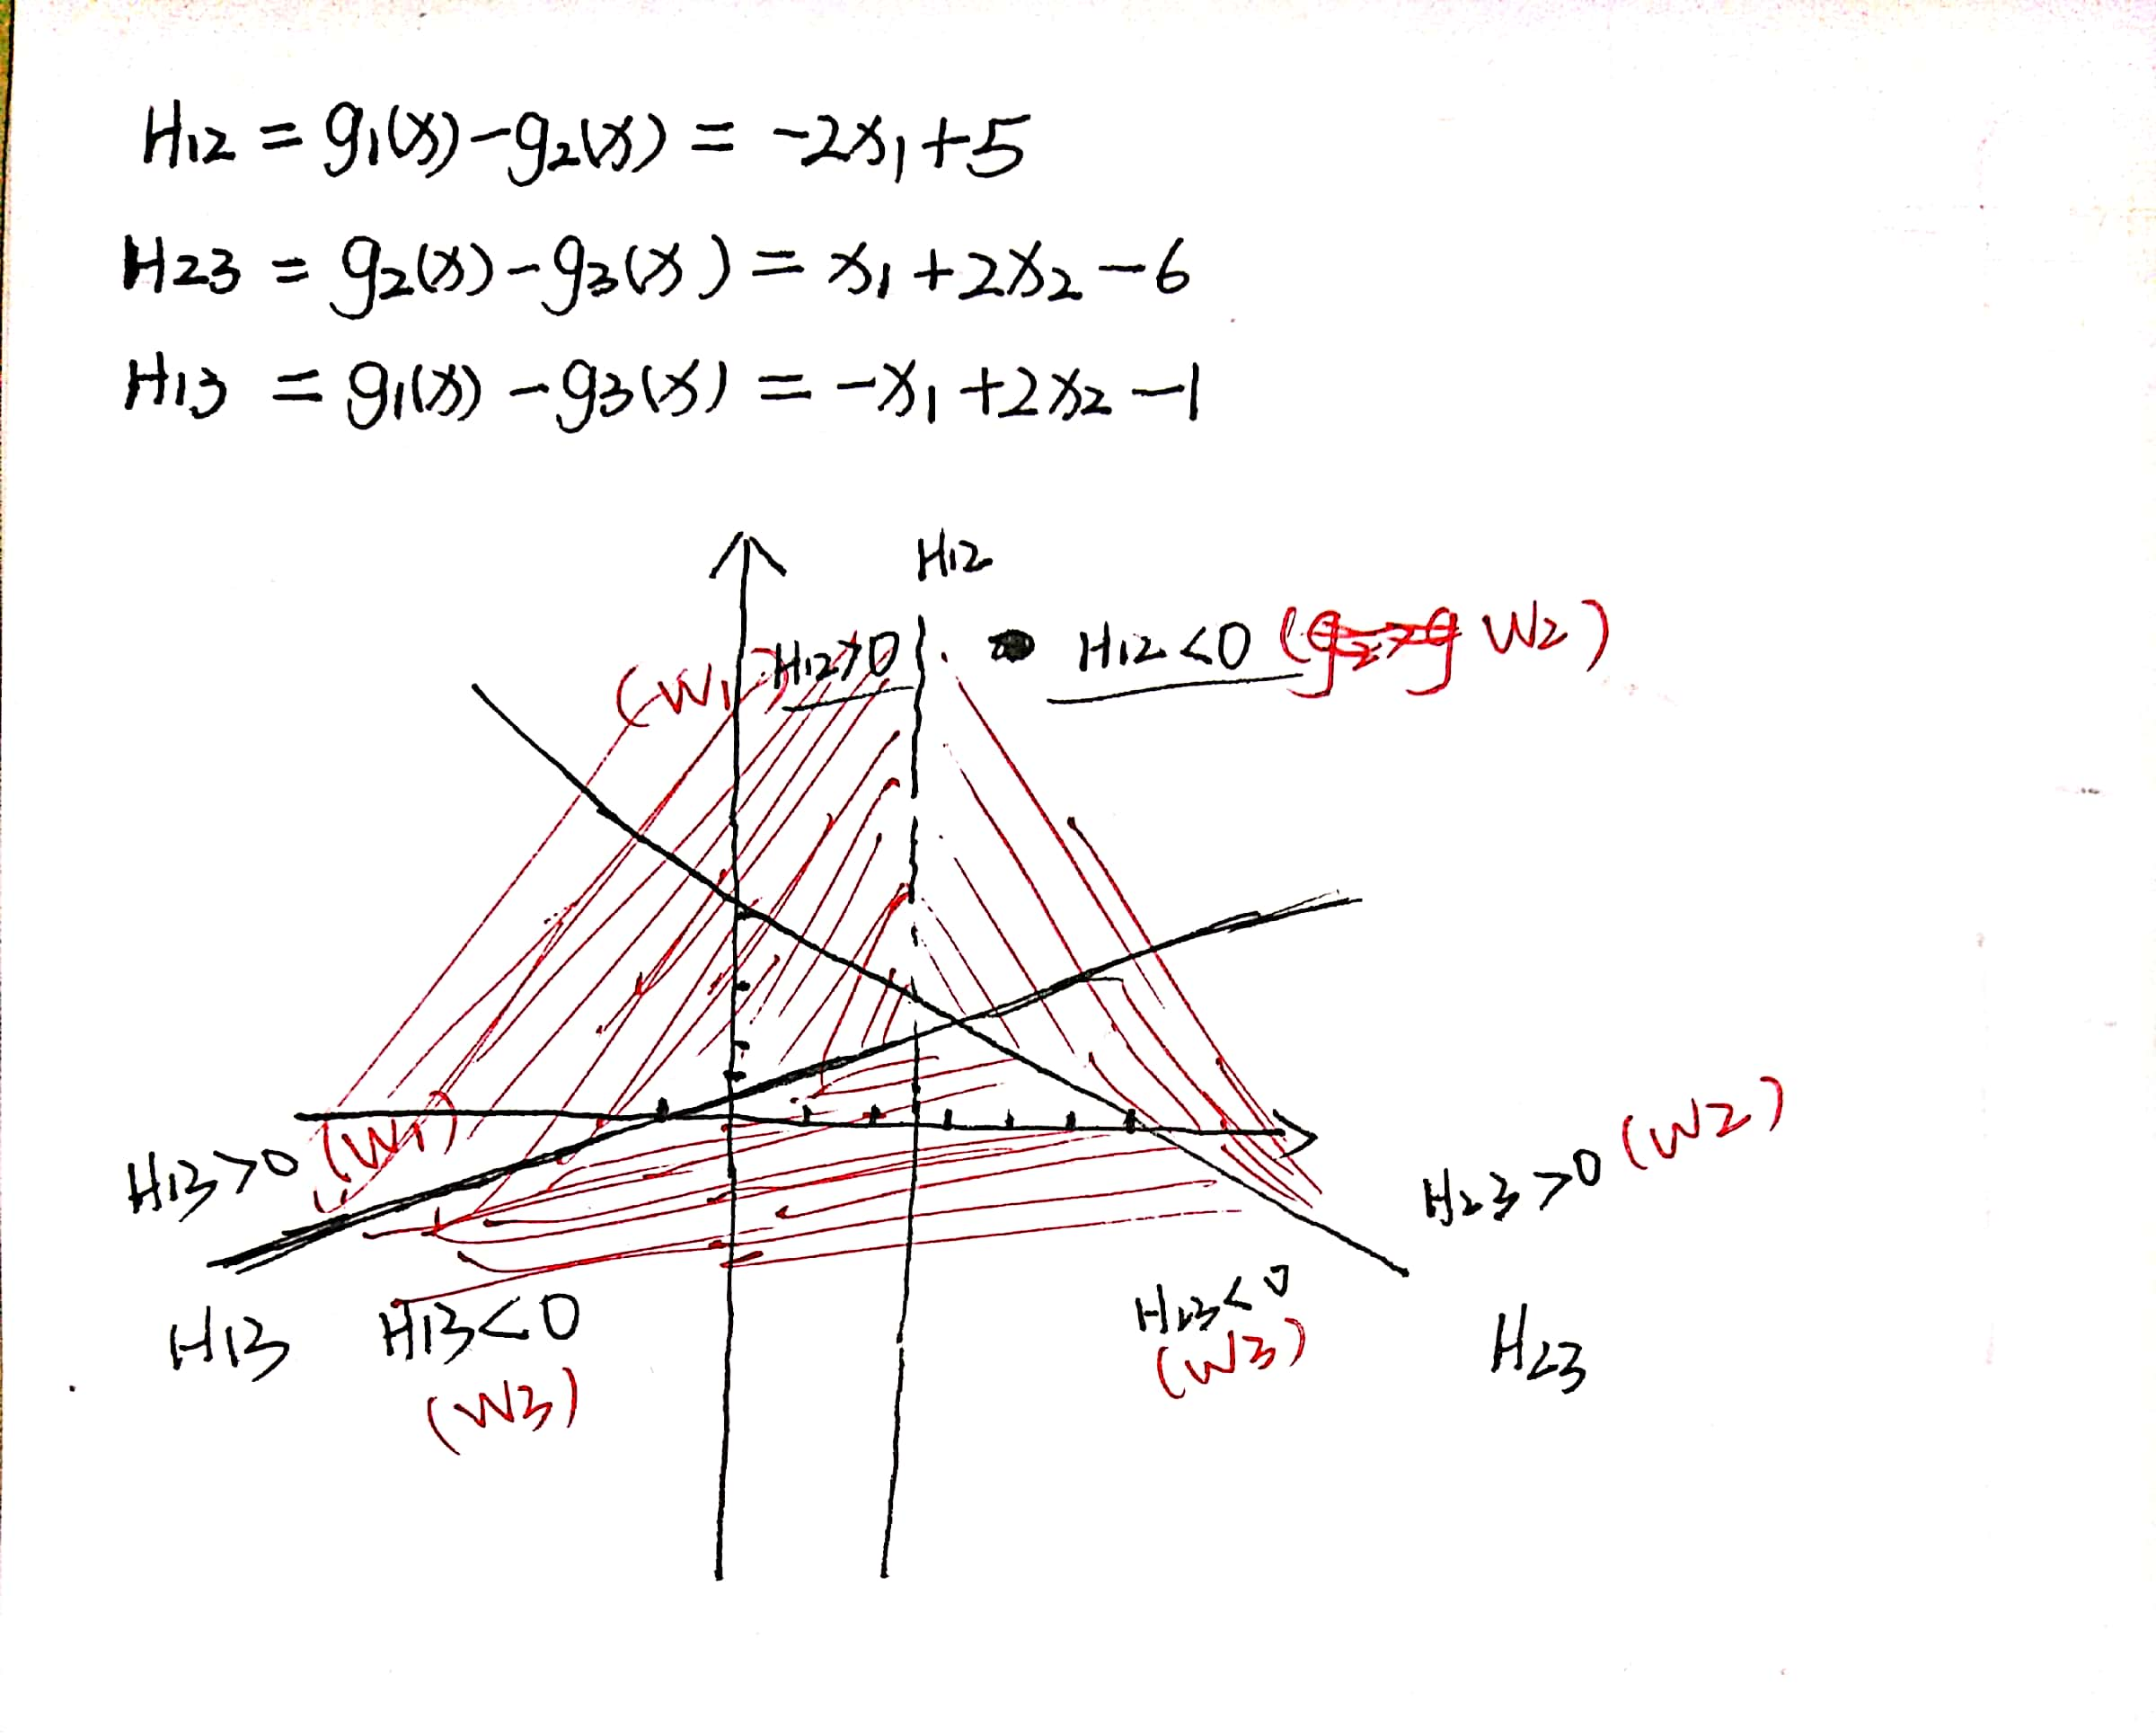 H12 = g1(x)-g2(x) = -2x1+5
H23 = g2(x)-g3(x) = x1+2x2-6
H13 = g1(x)-g3(x) = -x1+2x2-1
H12
(W1) H12>0 H12<0 (W2)
H13>0 (W1) H23>0 (W2)
H13 H13<0 (W3) H23<0 (W3) H23